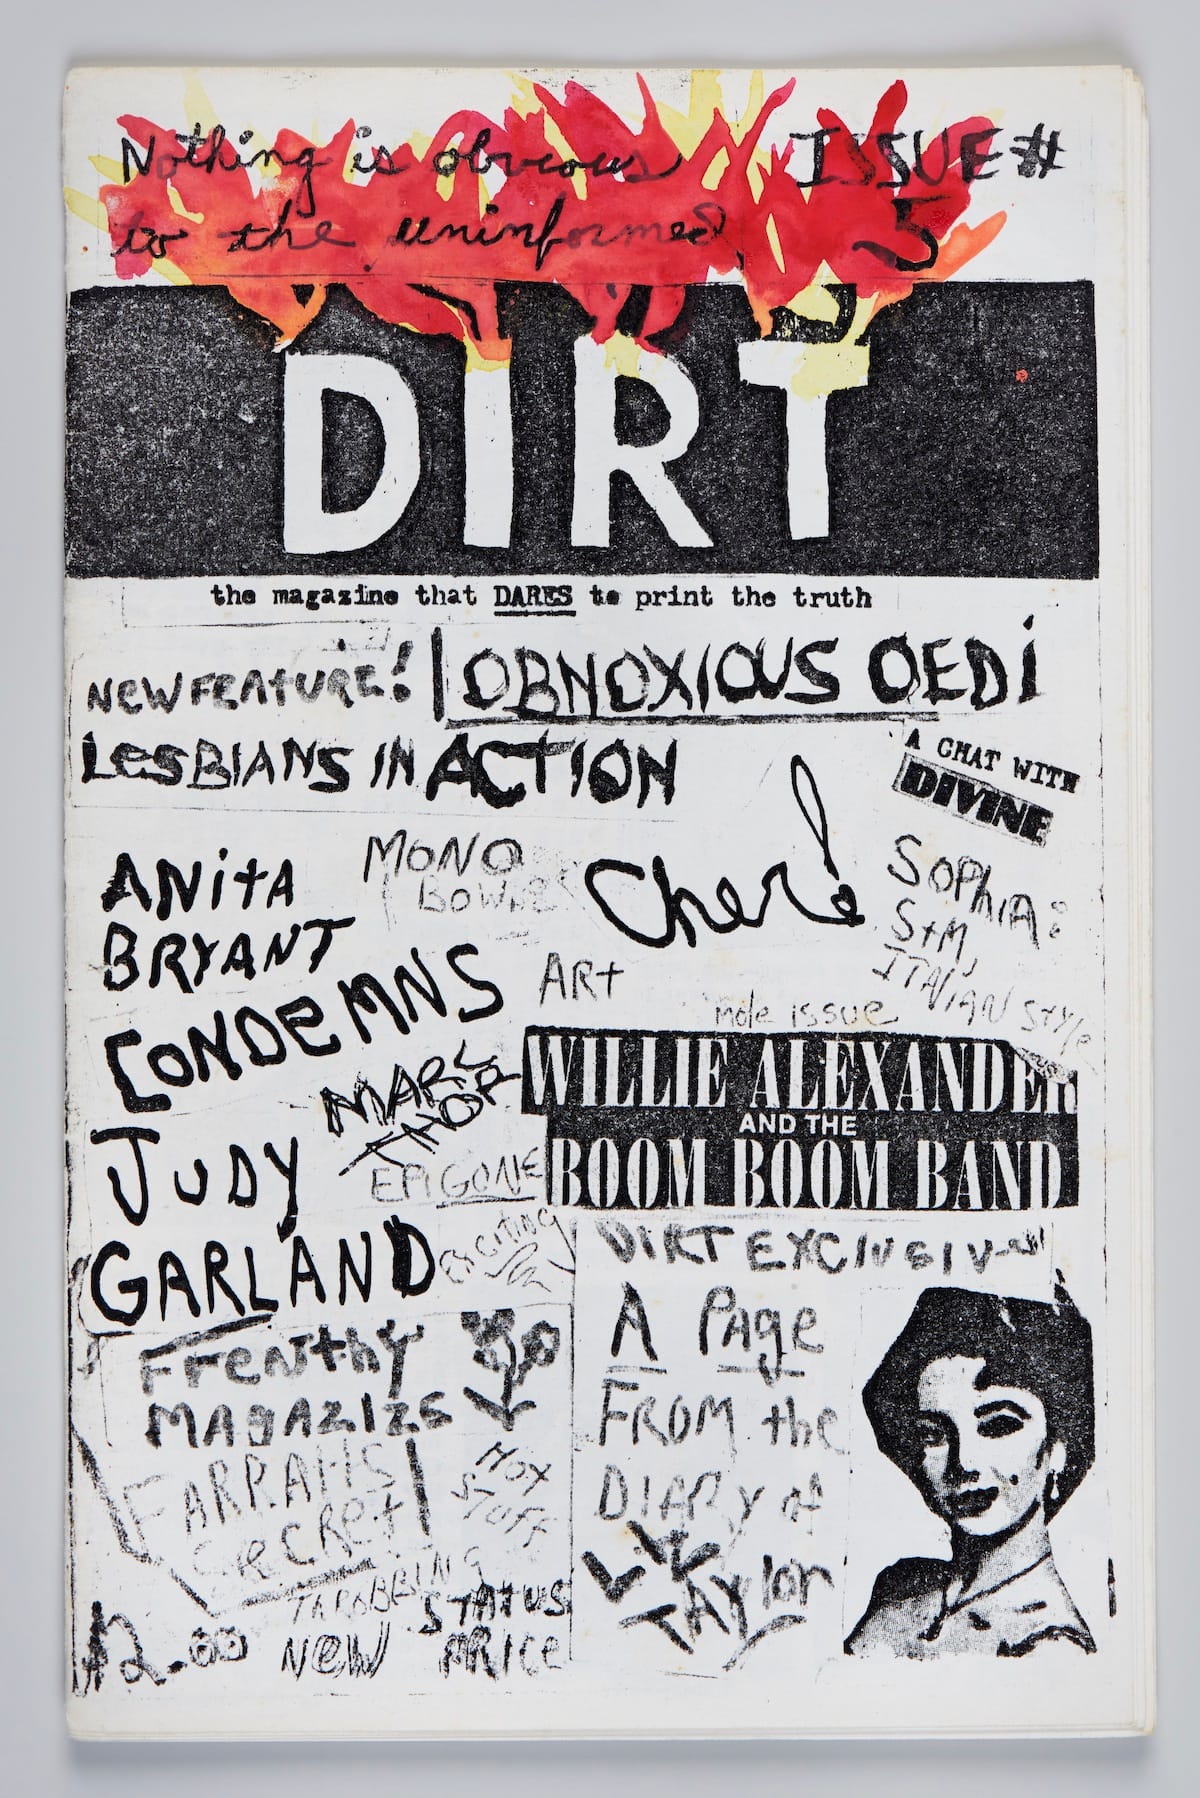 Nothing is obvious
to the uninformed
ISSUE #
5
DIRT
the magazine that DARES to print the truth
NEW FEATURE! OBNOXIOUS OEDi
LESBIANS IN ACTION
A CHAT WITH
DIVINE
ANitA
BRYANT
CONDEMNS
JUDY
GARLAND
MONO
Cher!
SOPHIA:
S+M,
ITALIAN StYle
ARt
mole issue
MARK
EPIGONE
EXCITING
WILLIE ALEXANDER
AND THE
BOOM BOOM BAND
FFenthy
MAGAZIZE
FARRAHS
SeCRet
HOT
STUFF
THROBBING
$2.00
NeW
STATUS
PRICe
DIRT EXCLUSIV
A PAge
FROM the
DIARY of
LYZ
TAYlor